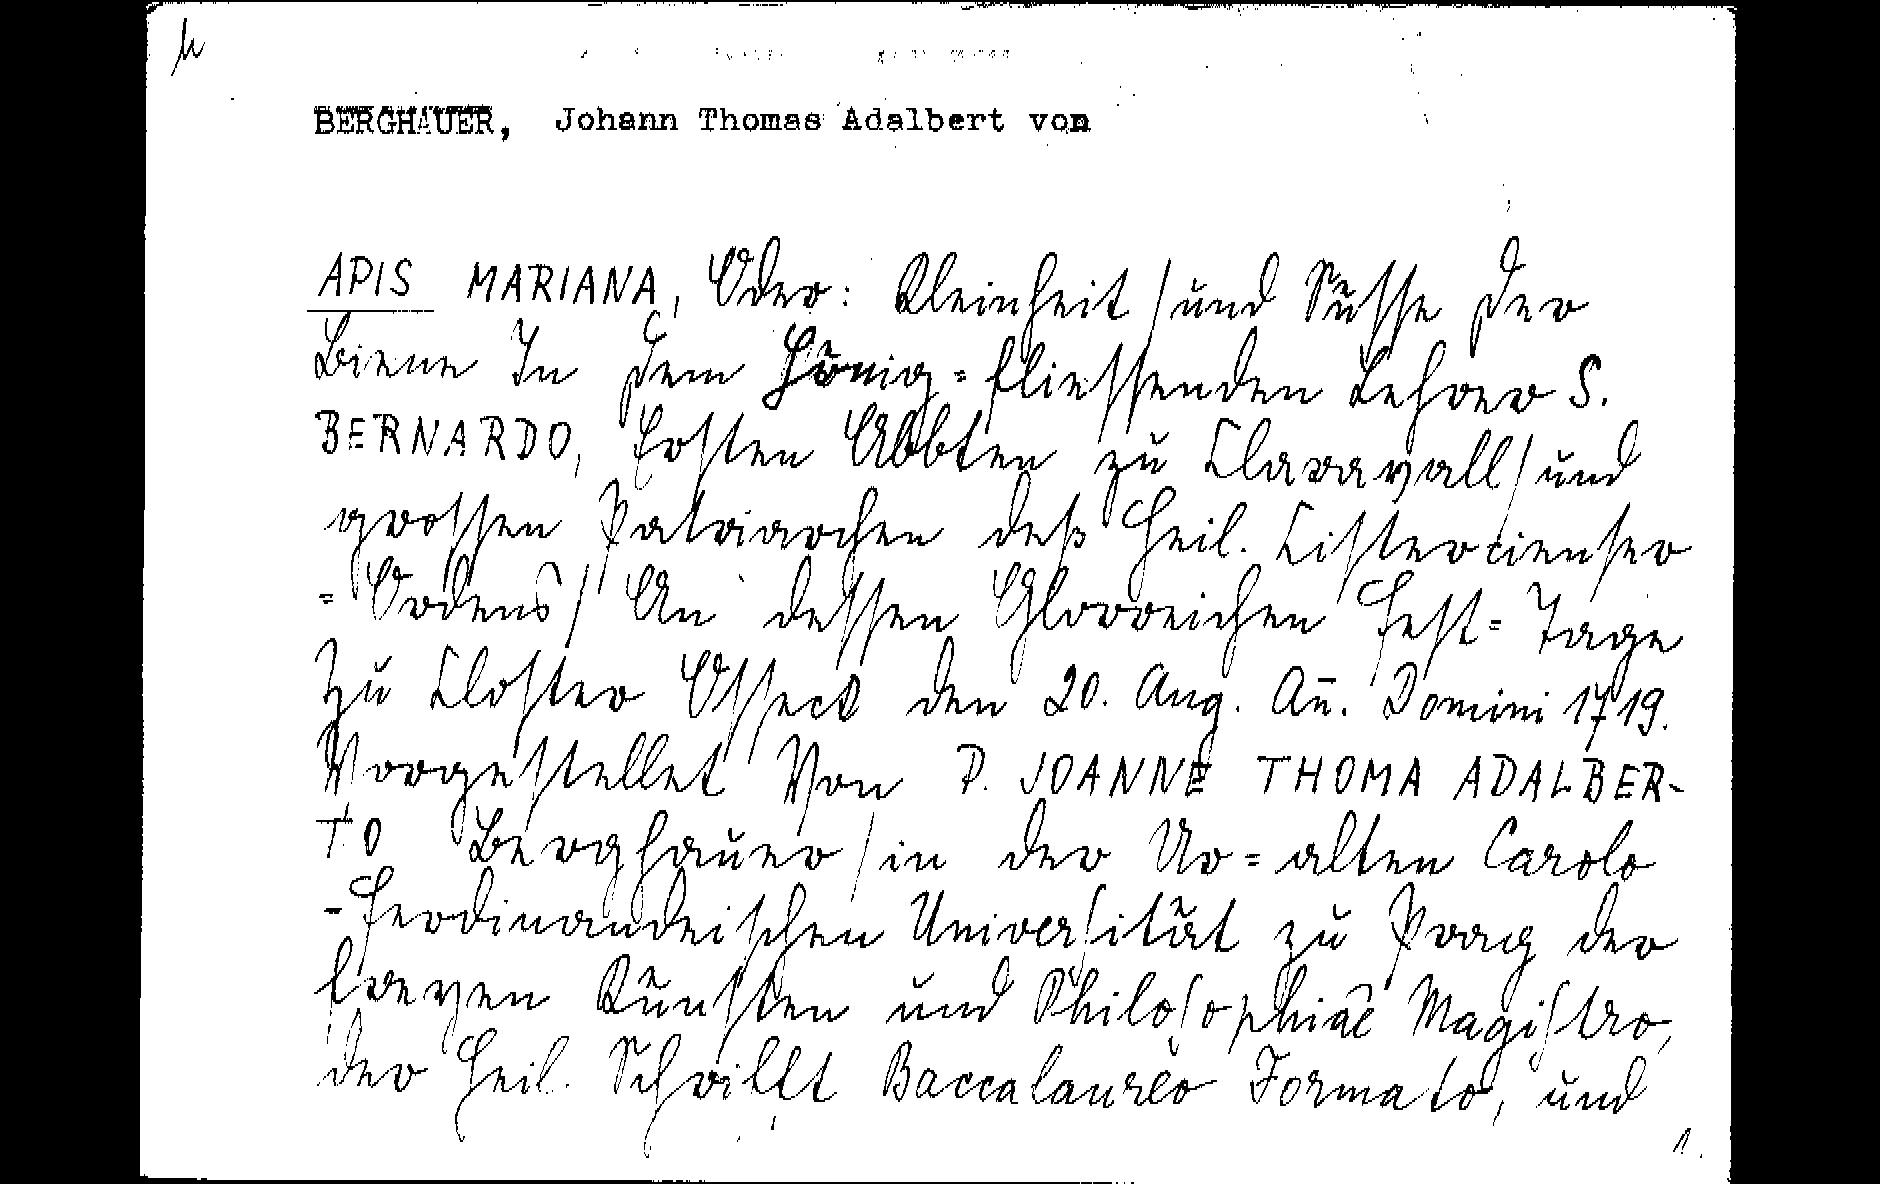 BERGHAUER, Johann Thomas Adalbert von
APIS MARIANA, Oder: Kleinheit / und Süsse der
Biene In dem Hönig=fliessenden Lehrer S.
BERNARDO, Ersten Abbten zu Claravall / und
grossen Patriarchen deß Heil. Cistercienser
=Ordens / An dessen Glorreichen Fest=Tage
Zu Closter Osseck den 20. Aug. An̄. Domini 1719.
Vorgestellet Von P. JOANNE THOMA ADALBER-
TO Berghauer / in der Ur=alten Carolo
-Ferdinandeischen Universität zu Prag der
freyen Künsten und Philosophiae Magistro,
der Heil. Schrifft Baccalaureo Formato, und
1.